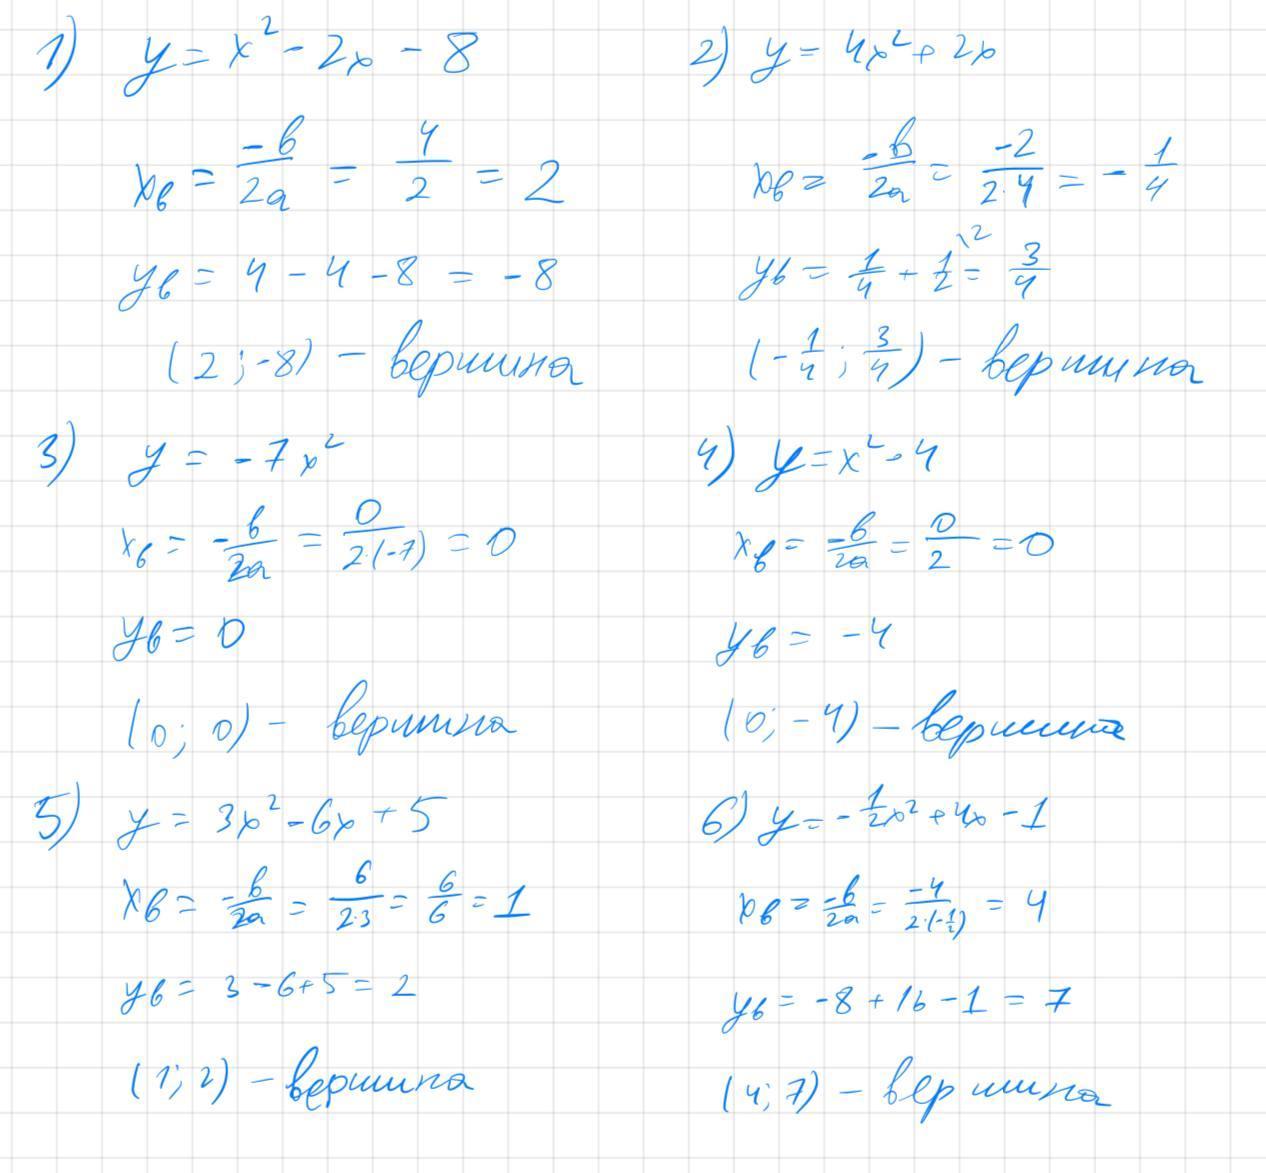 1) y = x² - 2x - 8
xв = -b/2a = 4/2 = 2
yв = 4 - 4 - 8 = -8
(2; -8) - вершина
2) y = 4x² + 2x
xв = -b/2a = -2/2·4 = -1/4
yв = 1/4 + 1/2 \2 = 3/4
(-1/4; 3/4) - вершина
3) y = -7x²
xв = -b/2a = 0/2·(-7) = 0
yв = 0
(0; 0) - вершина
4) y = x² - 4
xв = -b/2a = 0/2 = 0
yв = -4
(0; -4) - вершина
5) y = 3x² - 6x + 5
xв = -b/2a = 6/2·3 = 6/6 = 1
yв = 3 - 6 + 5 = 2
(1; 2) - вершина
6) y = -1/2x² + 4x - 1
xв = -b/2a = -4/2·(-1/2) = 4
yв = -8 + 16 - 1 = 7
(4; 7) - вершина